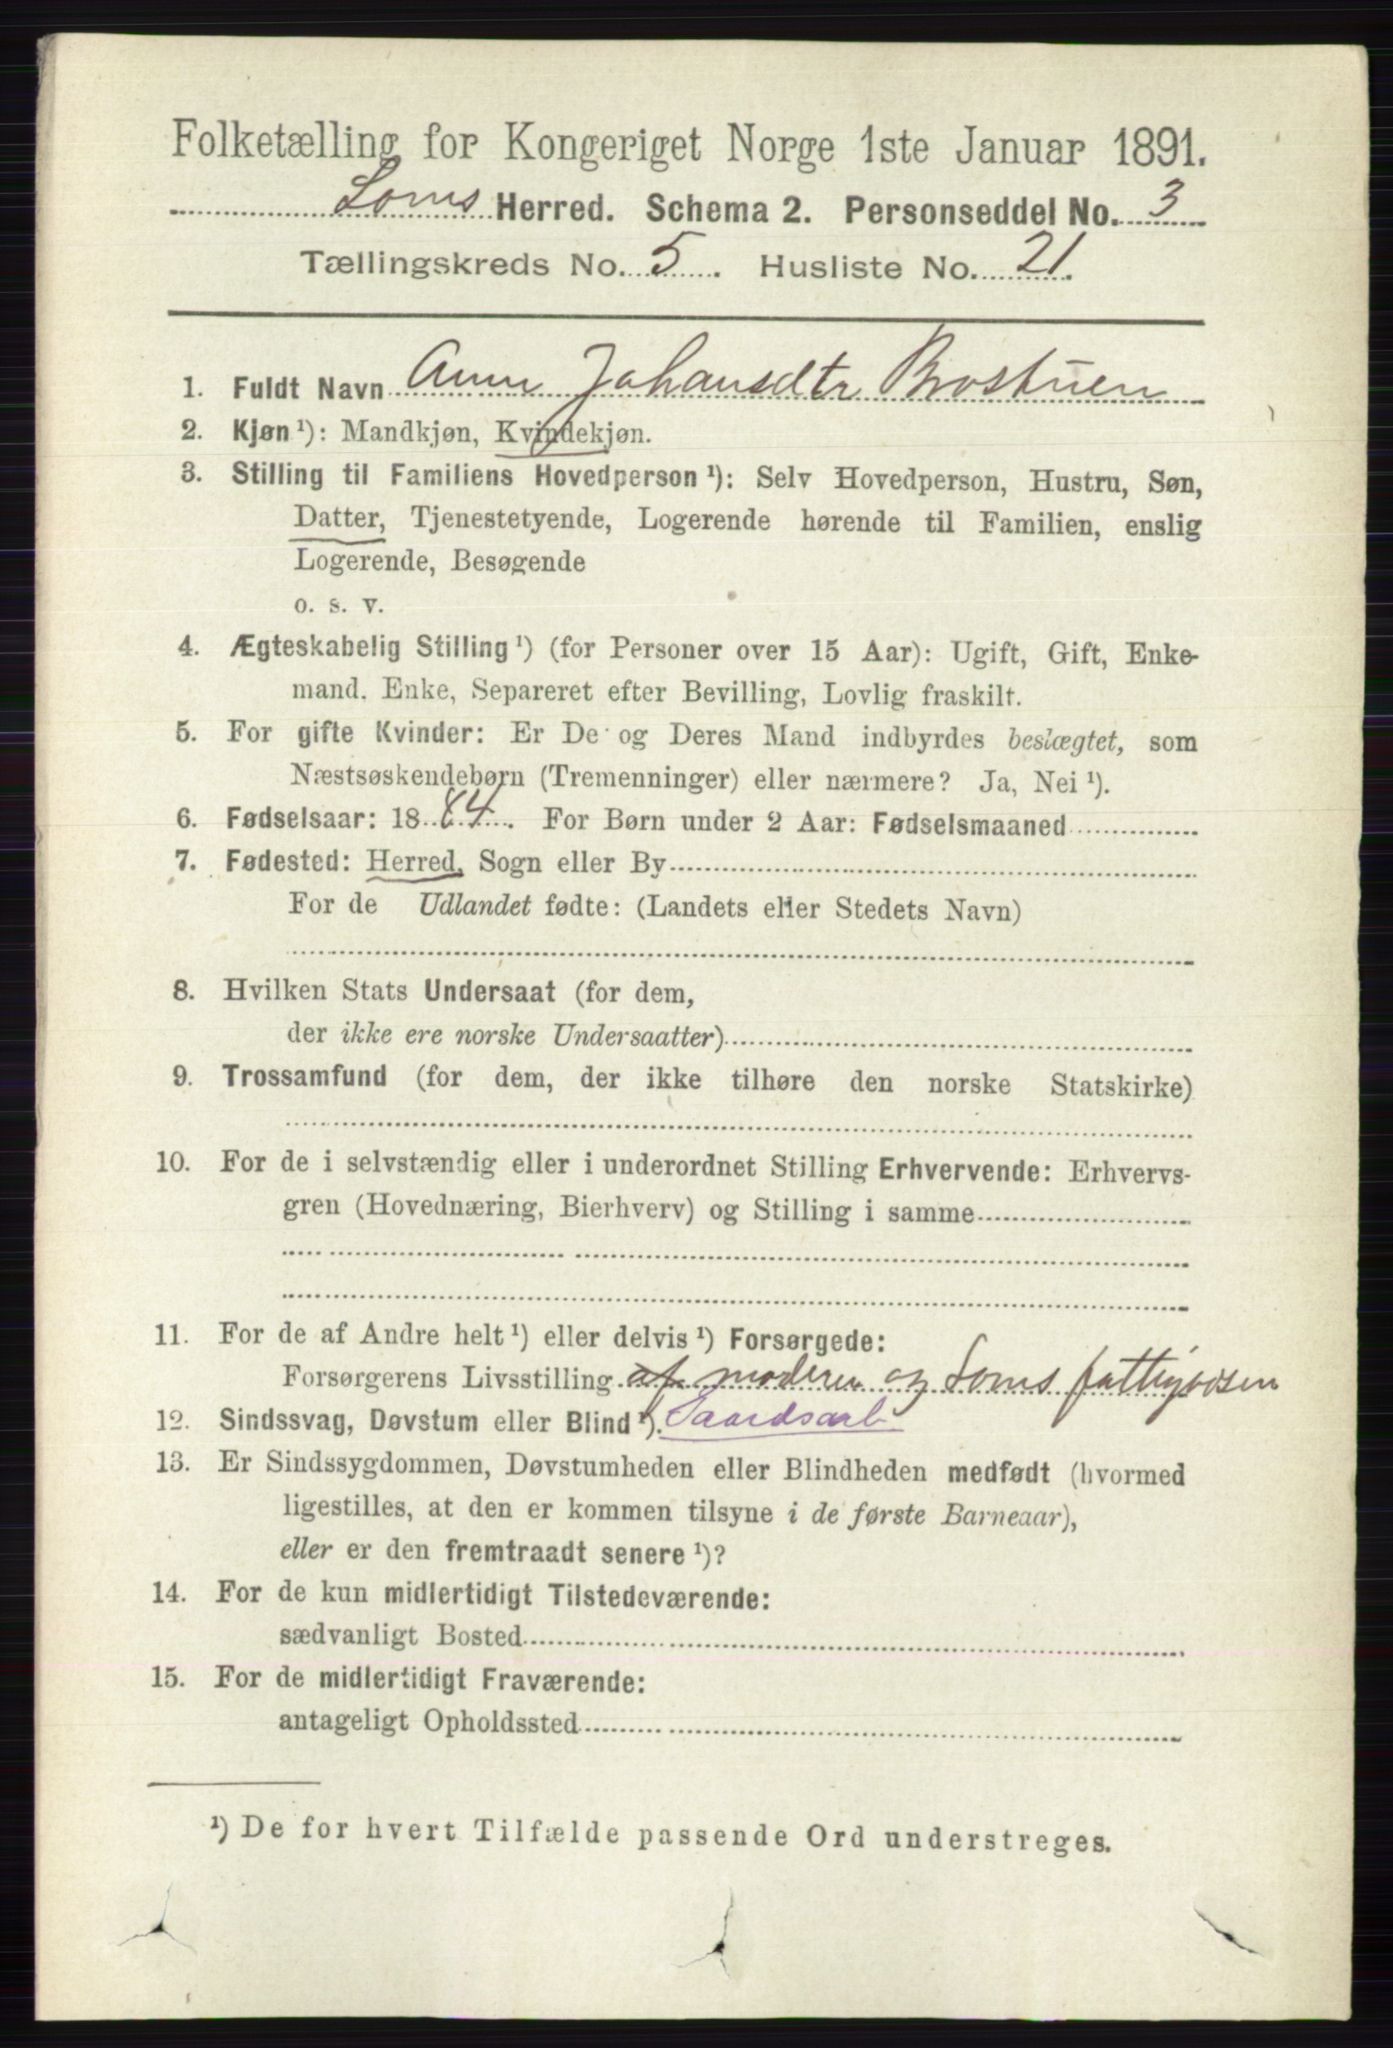 Folketælling for Kongeriget Norge 1ste Januar 1891.
Loms Herred. Schema 2. Personseddel No. 3
Tællingskreds No. 5. Husliste No. 21.
1. Fuldt Navn Anne Johansdtr Brostuen
2. Kjøn ¹): Mandkjøn, Kvindekjøn.
3. Stilling til Familiens Hovedperson ¹): Selv Hovedperson, Hustru, Søn,
Datter, Tjenestetyende, Logerende hørende til Familien, enslig
Logerende, Besøgende
o. s. v.
4. Ægteskabelig Stilling ¹) (for Personer over 15 Aar): Ugift, Gift, Enke-
mand. Enke, Separeret efter Bevilling, Lovlig fraskilt.
5. For gifte Kvinder: Er De og Deres Mand indbyrdes beslægtet, som
Næstsøskendebørn (Tremenninger) eller nærmere? Ja, Nei ¹).
6. Fødselsaar: 1884. For Børn under 2 Aar: Fødselsmaaned
7. Fødested: Herred, Sogn eller By
For de Udlandet fødte: (Landets eller Stedets Navn)
8. Hvilken Stats Undersaat (for dem,
der ikke ere norske Undersaatter)
9. Trossamfund (for dem, der ikke tilhøre den norske Statskirke)
10. For de i selvstændig eller i underordnet Stilling Erhvervende: Erhvervs-
gren (Hovednæring, Bierhverv) og Stilling i samme
11. For de af Andre helt ¹) eller delvis ¹) Forsørgede:
Forsørgerens Livsstilling af moderen og Loms fattigvæsen
12. Sindssvag, Døvstum eller Blind ¹).
13. Er Sindssygdommen, Døvstumheden eller Blindheden medfødt (hvormed
ligestilles, at den er kommen tilsyne i de første Barneaar),
eller er den fremtraadt senere ¹)?
14. For de kun midlertidigt Tilstedeværende:
sædvanligt Bosted
15. For de midlertidigt Fraværende:
antageligt Opholdssted
¹) De for hvert Tilfælde passende Ord understreges.